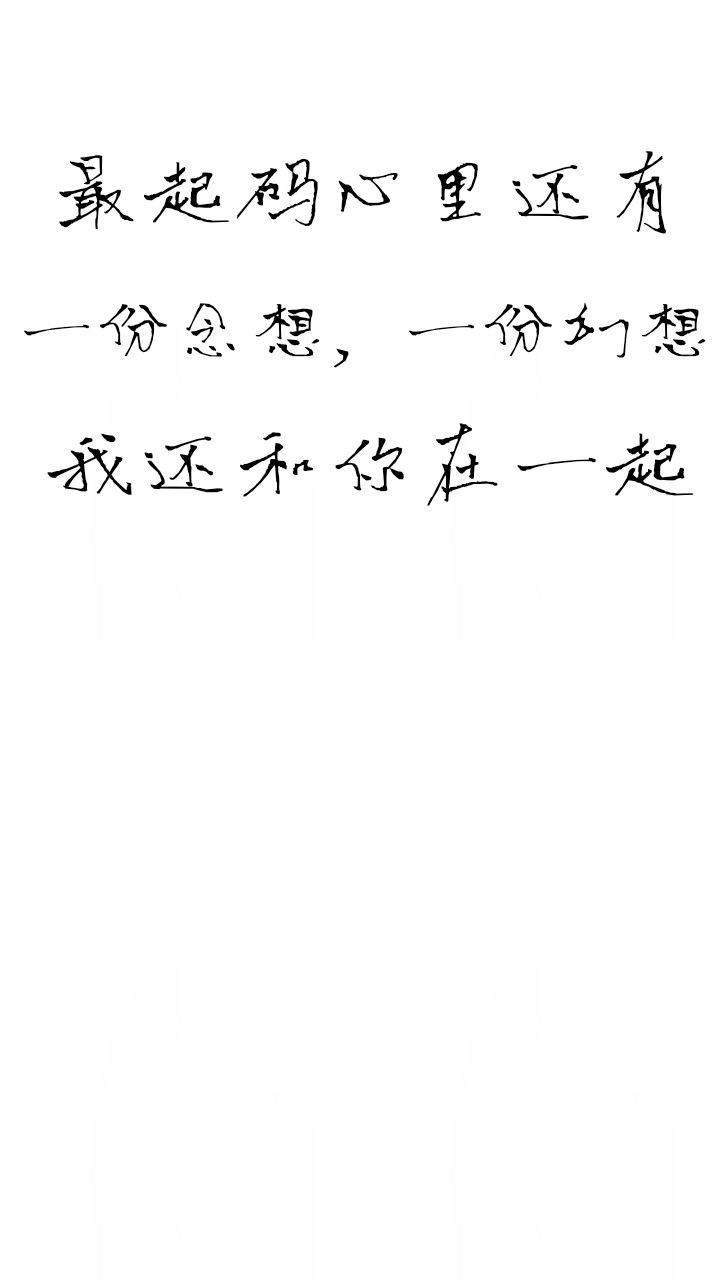 最起码心里还有
一份念想，一份幻想
我还和你在一起